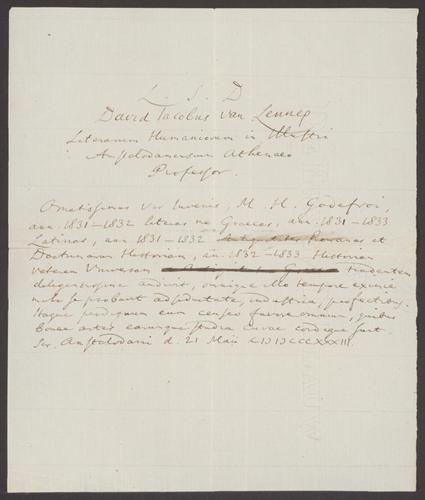 L. S. D
David Jacobus van Lennep
Literarum Humaniorum in Illustri
Amstelodamensium Athenaeo
Professor.
Ornatissimus Vir Iuvenis, M. H. Godefroi,
ann. 1831-1832 literas Graecas, ann. 1831-1833
Latinas, ann 1831-1832 Antiquitates Romanas et
Doctrinarum Historiam, an. 1832-1833 Historiam
veterem Universam tradentem
diligentissime audivit, omnique illo tempore eximie
mihi se probavit adsiduitate, industria, profectibus.
Itaque perdignum eum censeo favore omnium, quibus
bonae artes earumque studia curae cordique sunt.
Scr. Amstelodami d. 21 Maii CIƆIƆCCCXXXIII.